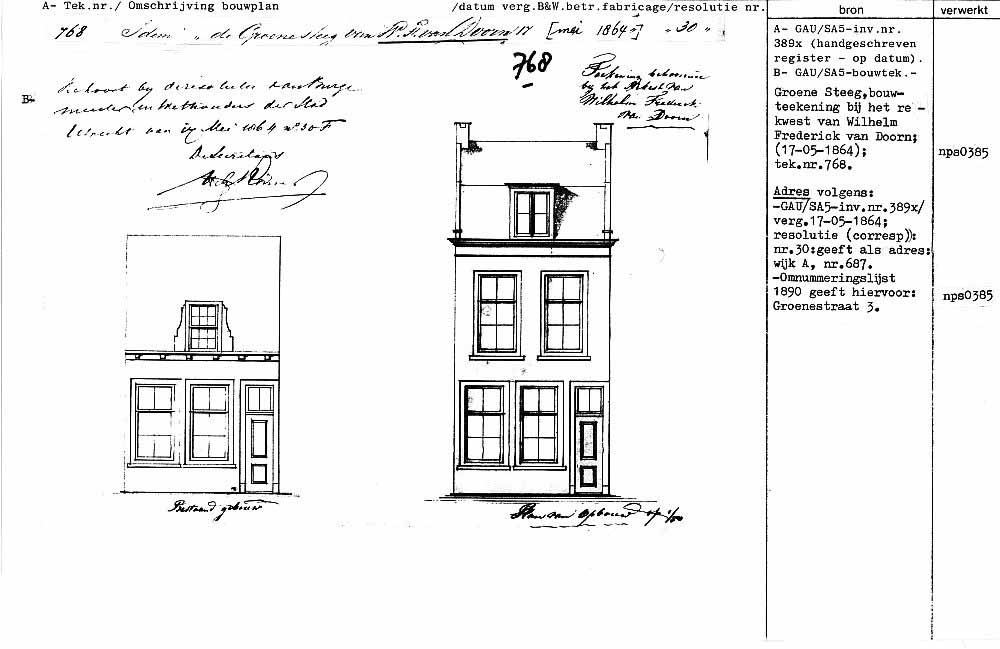 A- Tek.nr./ Omschrijving bouwplan /datum verg.B&W.betr.fabricage/resolutie nr.
bron
verwerkt
768 Idem „ de Groene steeg van W. F. van Doorn 17 [mei 1864] „ 30 „
768
Teekening behoorende
bij het Rekest van
Wilhelm Frederik
van Doorn
B-
Behoort bij de resolutie van Burge
meester en Wethouders der Stad
Utrecht van 17 Mei 1864 no 30 F
De Secretaris
Bestaand gebouw
Plan van Opbouw op 1/100
A- GAU/SA5-inv.nr.
389x (handgeschreven
register - op datum).
B- GAU/SA5-bouwtek.-
Groene Steeg,bouw-
teekening bij het re -
kwest van Wilhelm
Frederick van Doorn;
(17-05-1864);
tek.nr.768.
nps0385
Adres volgens:
-GAU/SA5-inv.nr.389x/
verg.17-05-1864;
resolutie (corresp)):
nr.30:geeft als adres:
wijk A, nr.687.
-Omnummeringslijst
1890 geeft hiervoor:
Groenestraat 3.
nps0385